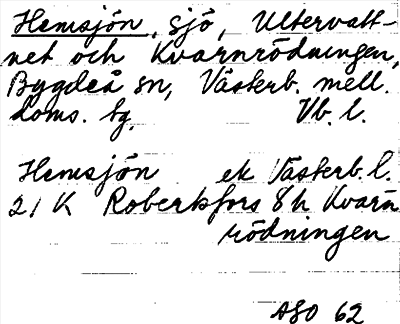 Hemsjön, sjö, Ultervatt-
net och Kvarnrödningen,
Bygdeå sn, Västerb. mell.
doms. tg. Vb. l.
Hemsjön ek Västerb. l.
21 K Robertsfors 8h Kvarn
rödningen
ASO 62